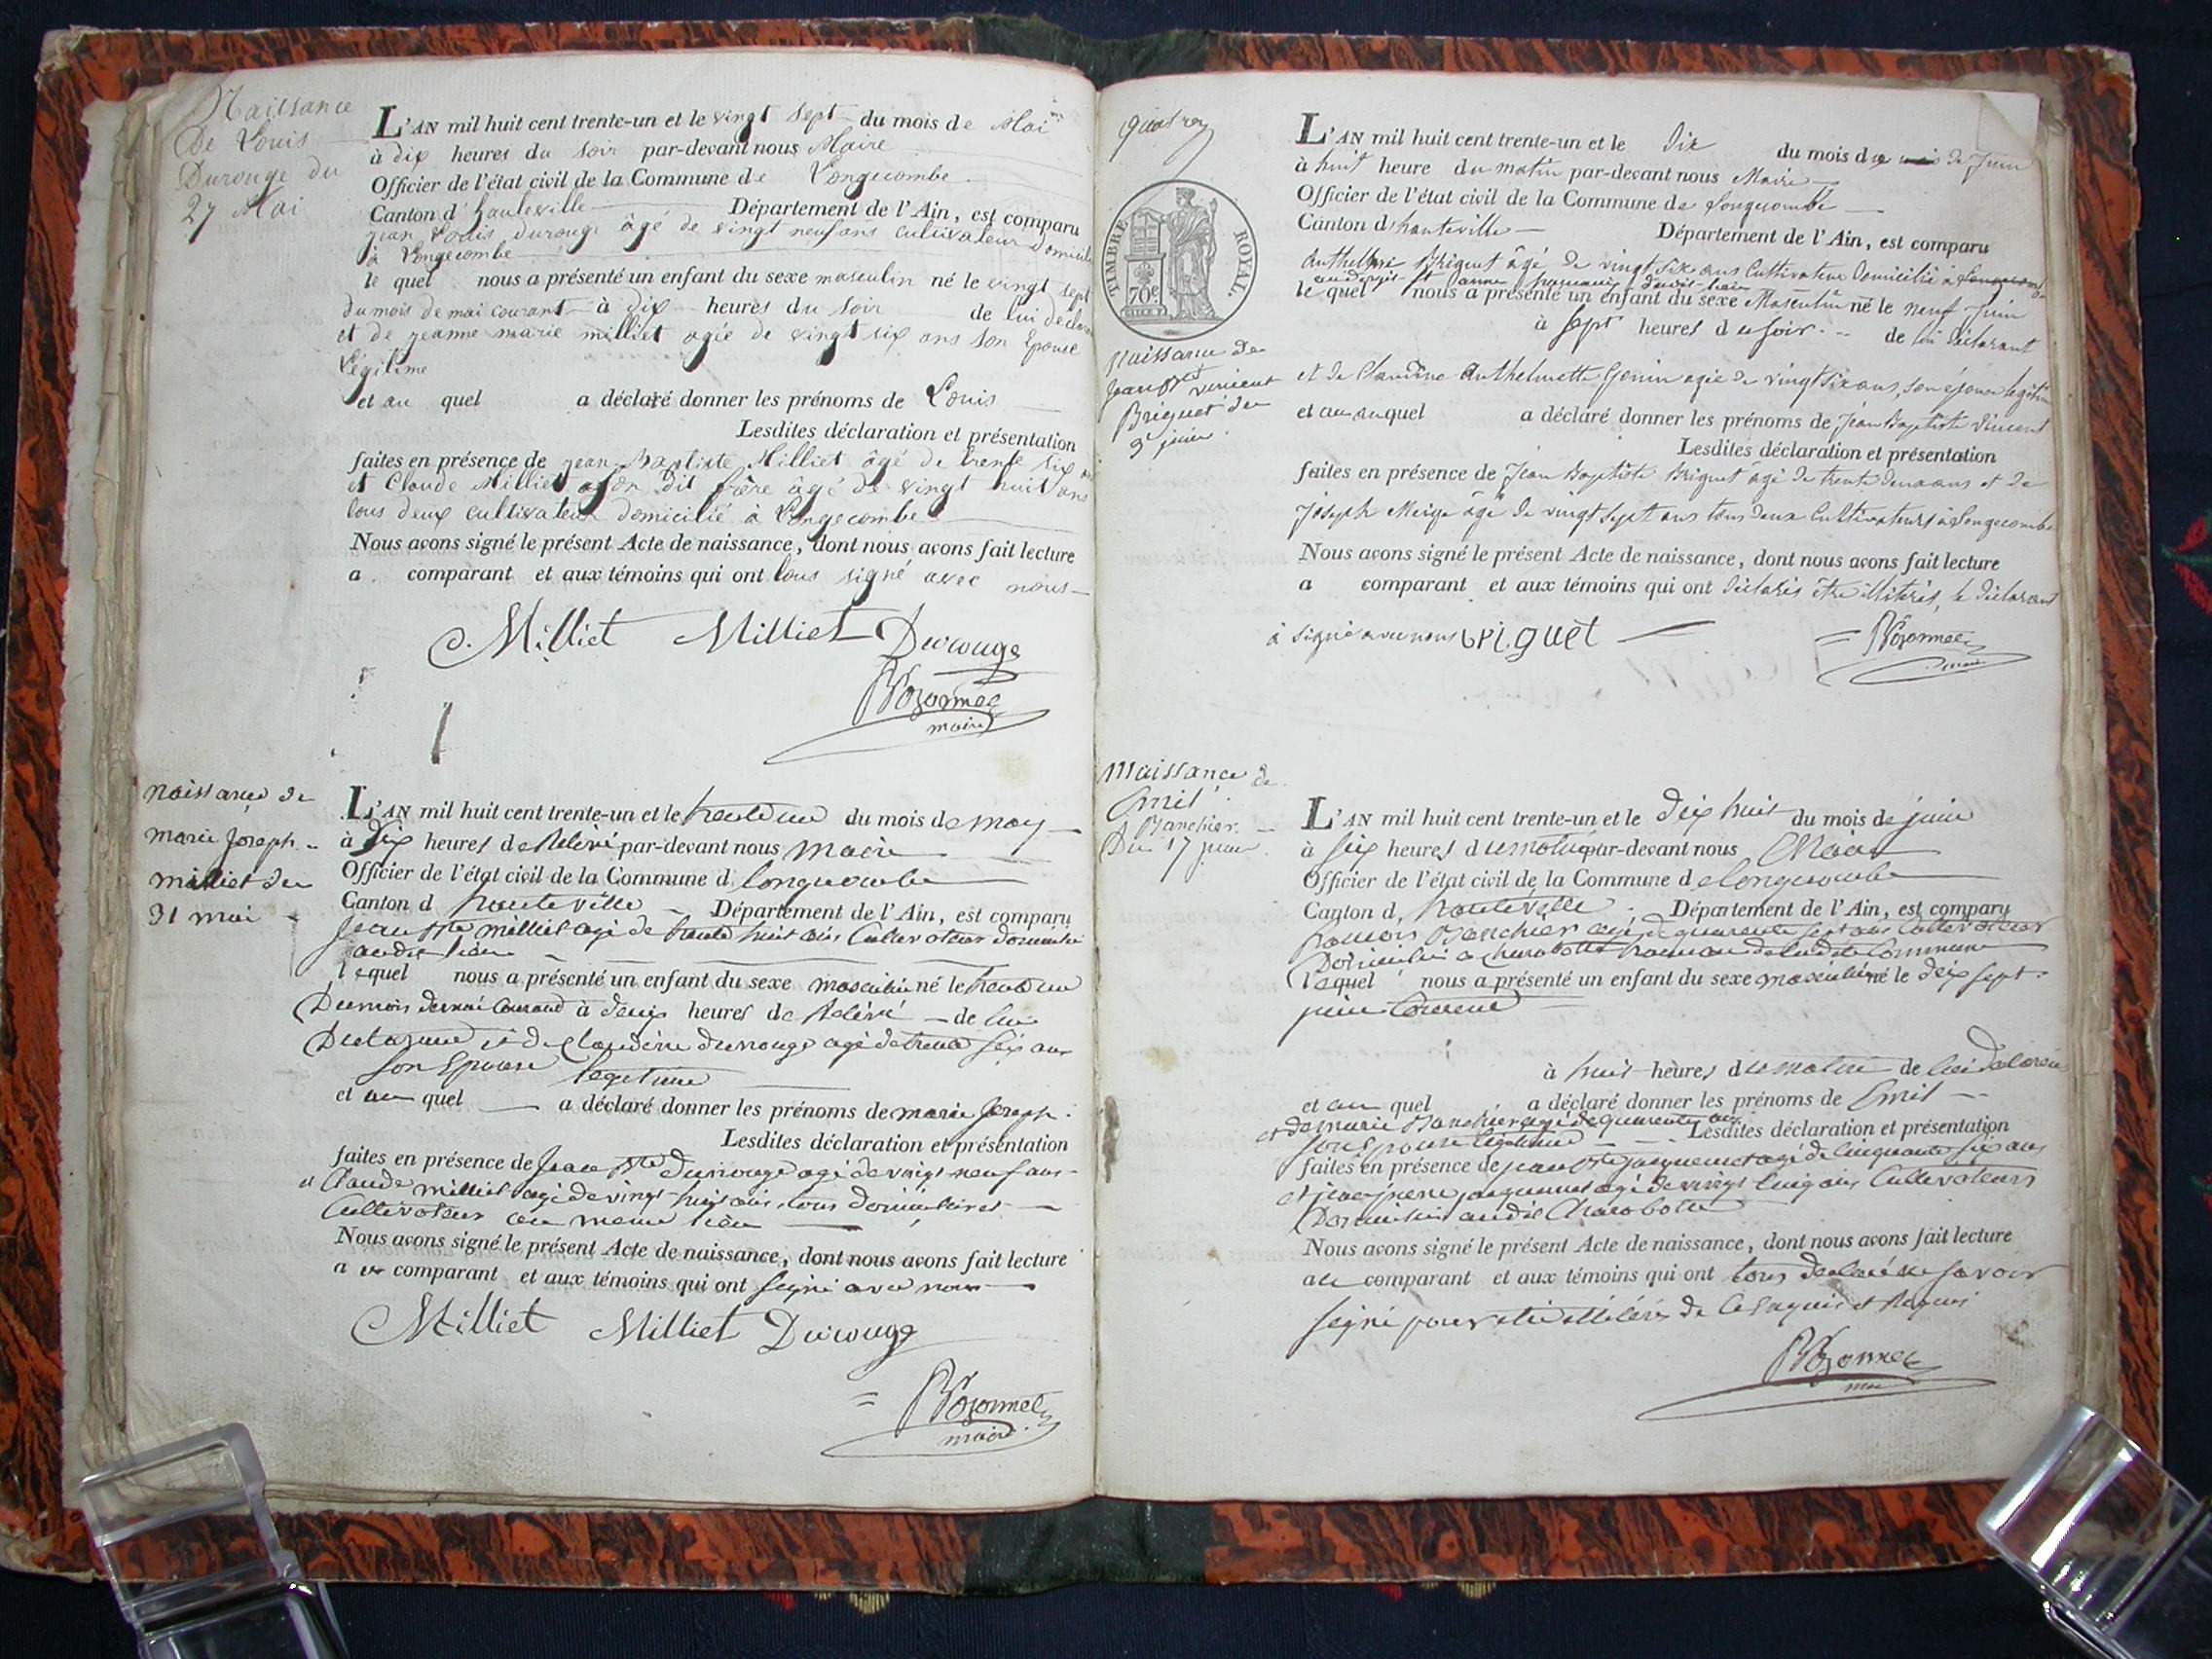 Naissance
De Louis
Durouge du
27 Mai
L'AN mil huit cent trente-un et le vingt sept du mois de Mai
à dix heures du soir par-devant nous Maire
Officier de l'état civil de la Commune de Longecombe
Canton d'hauteville Département de l'Ain, est comparu
jean Louis durouge âgé de vingt neuf ans cultivateur domicilié
à Longecombe
le quel nous a présenté un enfant du sexe masculin né le vingt sept
du mois de mai courant à dix heures du soir de lui déclarant
et de jeanne marie milliet agée de vingt six ans son Epouse
Légitime
et au quel a déclaré donner les prénoms de Louis
Lesdites déclaration et présentation
faites en présence de jean Baptiste Milliet âgé de trente six ans
et Claude Milliet son dit frère âgé de vingt huit ans
tous deux cultivateur domicilié à Longecombe
Nous avons signé le présent Acte de naissance, dont nous avons fait lecture
a comparant et aux témoins qui ont tous signé avec nous
Milliet Milliet Durouge
maire
naissance de
marie Joseph
milliet du
31 mai
L'AN mil huit cent trente-un et le trente un du mois de may
à Six heures de Relivé par-devant nous maire
Officier de l'état civil de la Commune d Longecombe
Canton d hauteville Département de l'Ain, est comparu
Jean Bte milliet agé de trente huit ans Cultivateur domicilié
audit lieu
lequel nous a présenté un enfant du sexe masculin né le trente un
Du mois de mai Courant à deux heures de Relivé de lui
Declarant et de Claudine durouge agé de trente six ans
son Epouse legitime
et au quel a déclaré donner les prénoms de marie Joseph
Lesdites déclaration et présentation
faites en présence de Jean Bte Durouge agé de vingt neuf ans
et Claude milliet agé de vingt huit ans, tous
Cultivateur au meme lieu
Nous avons signé le présent Acte de naissance, dont nous avons fait lecture
a comparant et aux témoins qui ont signé avec nous
Milliet Milliet Durouge
maire
TIMBRE ROYAL.
70c
naissance de
Jean Bte vincent
Briguet du
9 juin
L'AN mil huit cent trente-un et le Dix du mois de Juin
à huit heure du matin par-devant nous Maire
Officier de l'état civil de la Commune de Longecombe
Canton d'hauteville Département de l'Ain, est comparu
Anthelme Briguet âgé de vingt six ans Cultivateur Domicilié à
le quel nous a présenté un enfant du sexe Masculin né le neuf Juin
à Sept heures du soir de lui déclarant
et de Claudine Anthelmette Gonin agée de vingt six ans, son épouse legitime
et au quel a déclaré donner les prénoms de Jean Baptiste Vincent
Lesdites déclaration et présentation
faites en présence de Jean Baptiste Briguet âgé de trente deux ans et de
Joseph âgé de vingt sept ans tous deux Cultivateurs à Longecombe
Nous avons signé le présent Acte de naissance, dont nous avons fait lecture
a comparant et aux témoins qui ont déclarés être illiterés, le déclarant
à signé avec nous briguet
Naissance de
Emil
Banchier
Du 17 juin
L'AN mil huit cent trente-un et le Dix huit du mois de juin
à six heures du matin par-devant nous Maire
Officier de l'état civil de la Commune de Longecombe
Canton d hauteville Département de l'Ain, est comparu
francois Banchier agé de quarante sept ans Cultivateur
Domicilié a hameau de la dite Commune
lequel nous a présenté un enfant du sexe masculin né le dix sept
juin Courant
à huit heures du matin de lui
et au quel a déclaré donner les prénoms de Emil
et de marie Banchier agé de quarante ans Lesdites déclaration et présentation
son Epouse legitime
faites en présence de jean Bte agé de Cinquante six ans
et agé de vingt Cinq ans Cultivateurs
Domicilié audit
Nous avons signé le présent Acte de naissance, dont nous avons fait lecture
au comparant et aux témoins qui ont tous declaré ne savoir
signé pour être illiteré de Ce Enquis et Requis